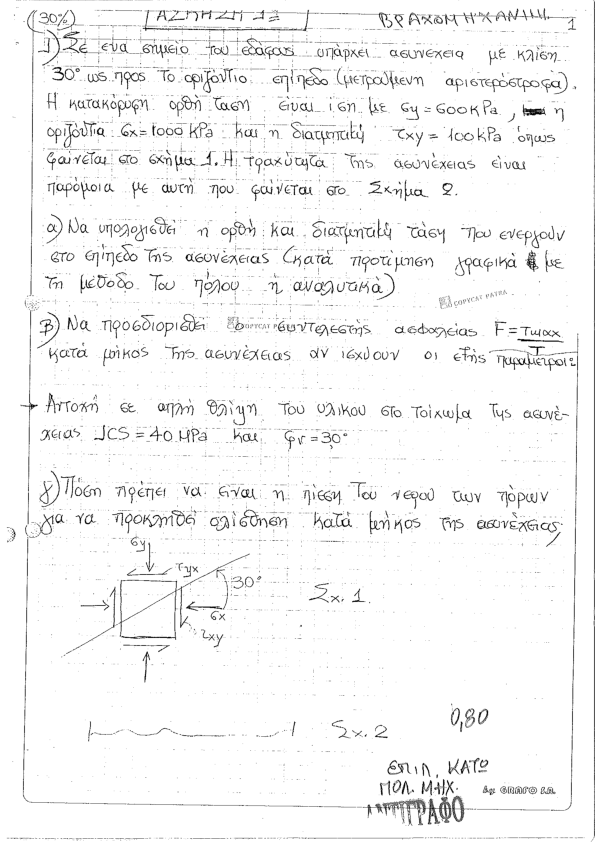 (30%) ΑΣΚΗΣΗ 12 ΒΡΑΧΟΜΗΧΑΝΙΚΗ 1
1) Σε ενα σημείο του εδάφους υπάρχει ασυνέχεια με κλίση
30° ως προς το οριζόντιο επίπεδο (μετρούμενη αριστερόστροφα).
Η κατακόρυφη ορθή τάση είναι ίση με σy = 600 kPa, η
οριζόντια σx = 1000 kPa και η διατμητική τxy = 100 kPa όπως
φαίνεται στο σχήμα 1. Η τραχύτητα της ασυνέχειας είναι
παρόμοια με αυτή που φαίνεται στο Σχήμα 2.
α) Να υπολογισθεί η ορθή και διατμητική τάση που ενεργούν
στο επίπεδο της ασυνέχειας (κατά προτίμηση γραφικά με
τη μέθοδο του πόλου ή αναλυτικά)
COPYCAT PATRA
β) Να προσδιορισθεί ο συντελεστής ασφαλείας F = τmax
τ
κατά μήκος της ασυνέχειας αν ισχύουν οι εξής παραμετροι:
→ Αντοχή σε απλή θλίψη του υλικου στο τοίχωμα της ασυνέ-
χειας JCS = 40 MPa και φr = 30°
γ) Πόση πρέπει να είναι η πίεση του νερού των πόρων
για να προκληθεί ολίσθηση κατά μήκος της ασυνέχειας;
σy
τyx
30°
σx
τxy
Σχ. 1
Σχ. 2
0,80
ΕΠΙΛ. ΚΑΤΩ
ΠΟΛ. ΜΗΧ.
ΑΝΤΙΓΡΑΦΟ